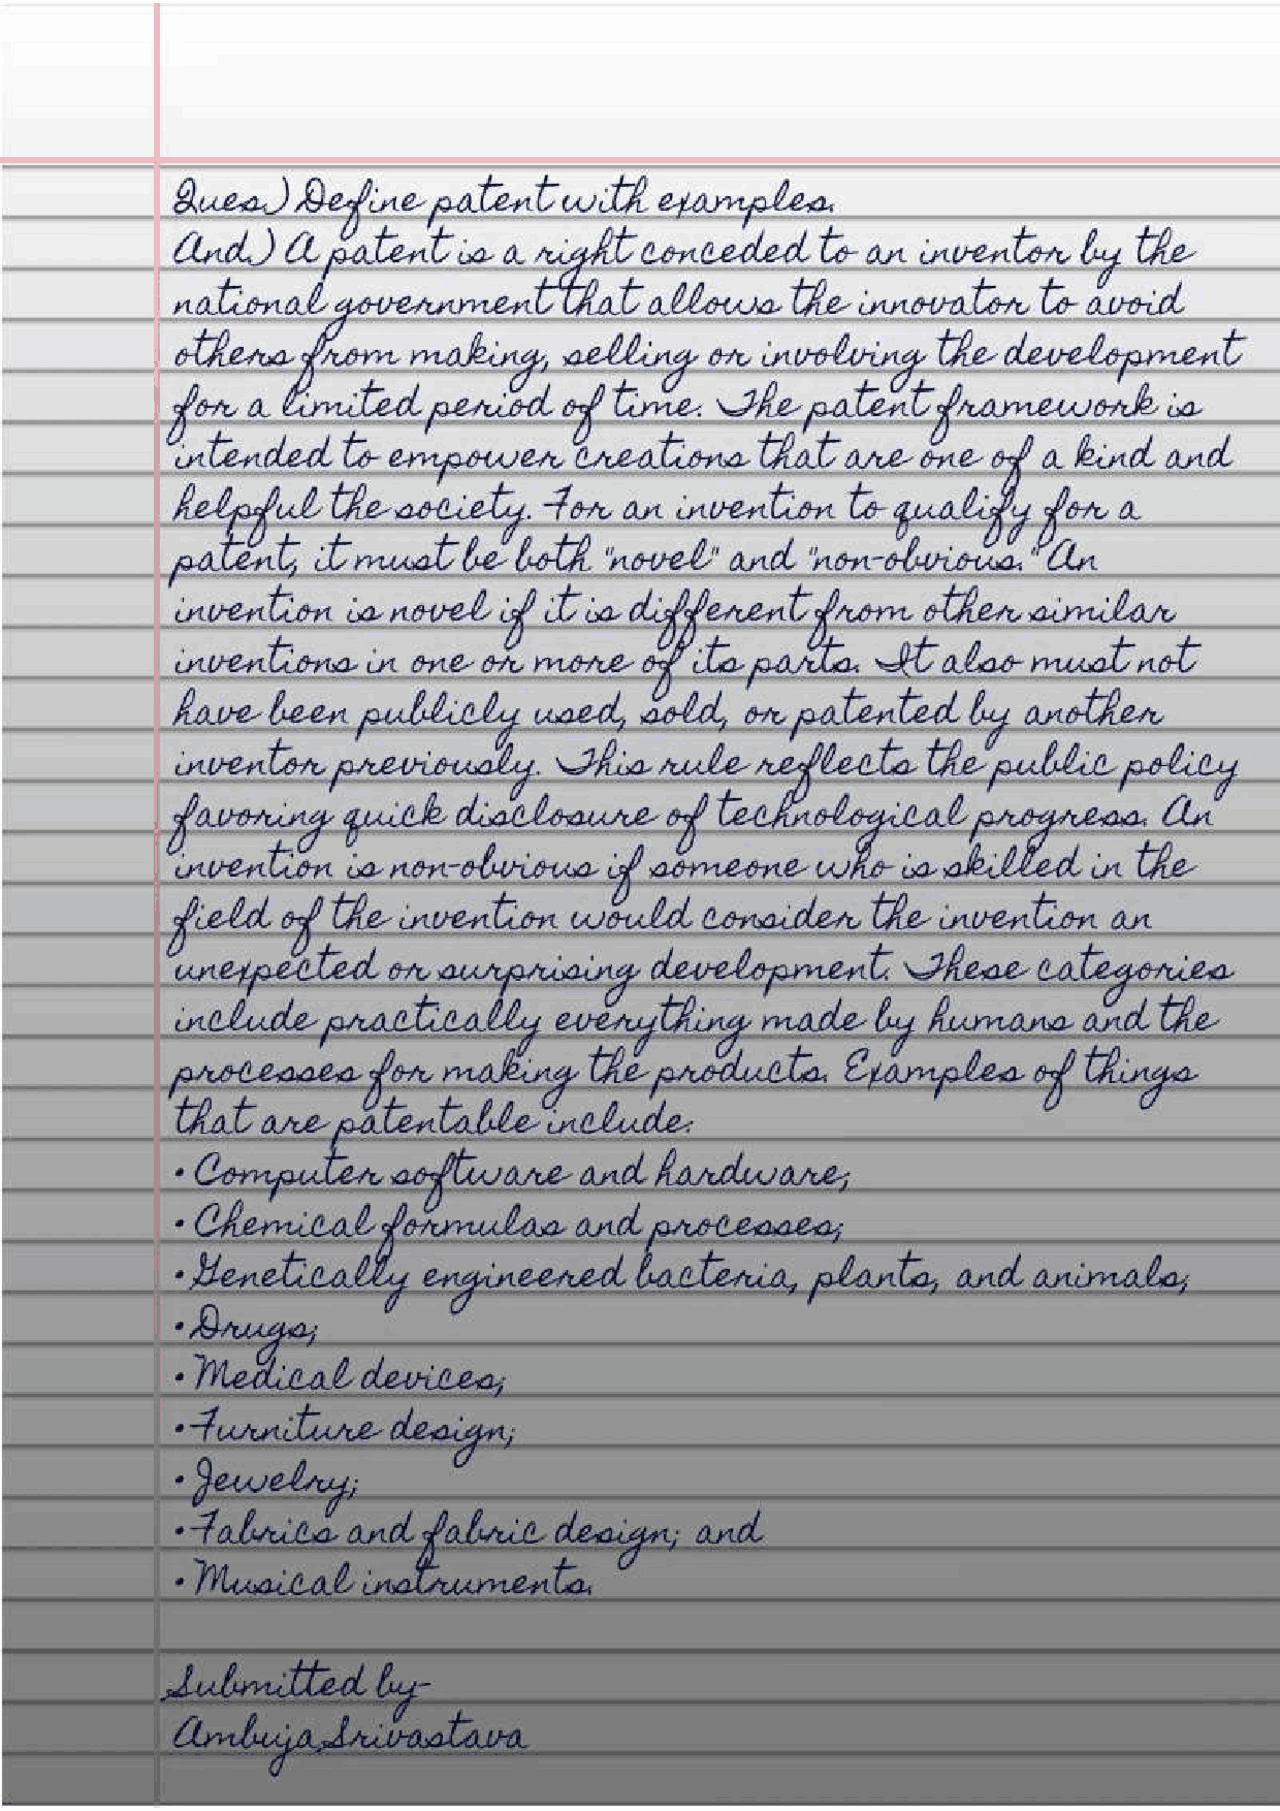 Ques.) Define patent with examples.
And.) A patent is a right conceded to an inventor by the
national government that allows the innovator to avoid
others from making, selling or involving the development
for a limited period of time. The patent framework is
intended to empower creations that are one of a kind and
helpful the society. For an invention to qualify for a
patent, it must be both "novel" and "non-obvious." An
invention is novel if it is different from other similar
inventions in one or more of its parts. It also must not
have been publicly used, sold, or patented by another
inventor previously. This rule reflects the public policy
favoring quick disclosure of technological progress. An
invention is non-obvious if someone who is skilled in the
field of the invention would consider the invention an
unexpected or surprising development. These categories
include practically everything made by humans and the
processes for making the products. Examples of things
that are patentable include:
• Computer software and hardware;
• Chemical formulas and processes;
• Genetically engineered bacteria, plants, and animals;
• Drugs;
• Medical devices;
• Furniture design;
• Jewelry;
• Fabrics and fabric design; and
• Musical instruments.
Submitted by-
Ambuja Srivastava